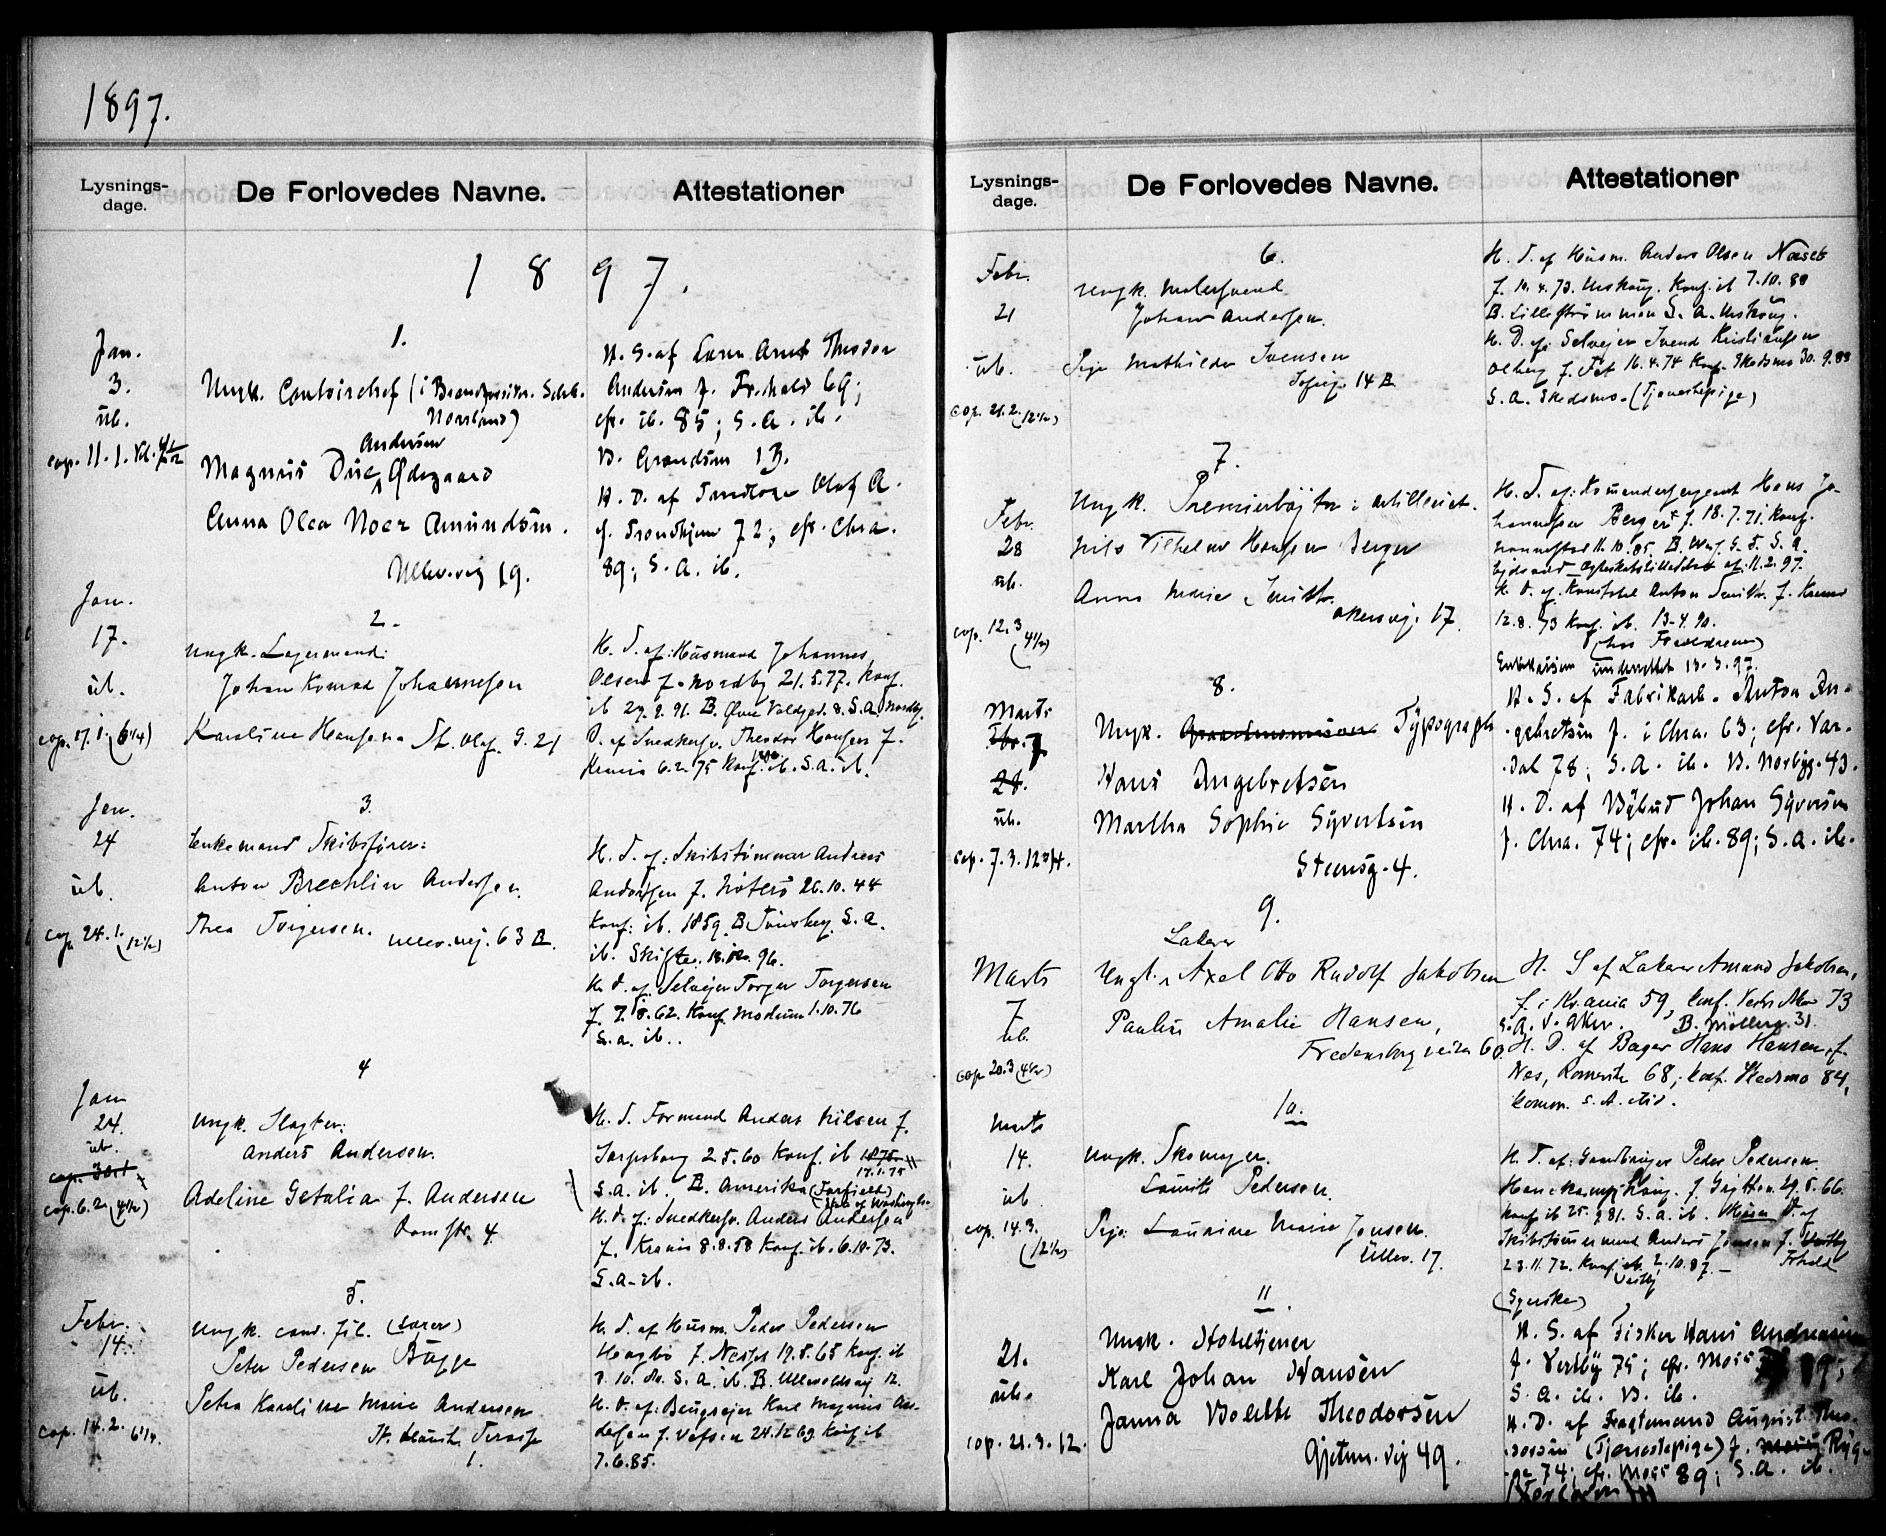 1897.
Lysnings-
dage.
De Forlovedes Navne.
Attestationer
1 8 9 7.
Jan.
3.
üb.
cop. 11.1. Kl.
1.
Ungk. Contoirchef (i Brandforsikr. Selsk.
Norrland)
Andersen
Magnus Due Ødegaard
Anna Olea Noer Amundsen.
Ullev.vej 19.
H. S. af Lærer Arnt Theodor
Andersen f. Fr.hald 69;
cfr. ib. 85; S. A. ib.
B. Grændsen 13.
H. D. af Olaf A.
f. Trondhjem 72; cfr. Chra.
89; S. A. ib.
Jan.
17.
üb.
cop. 17.1. (6 1/4)
2.
Ungk. Lagermand:
Johan Konrad Johannesen
Karoline Hansen. St. Olaf. G. 21
H. S. af: Husmand Johannes
Olsen f. Nordby 21.5.77. Konf.
ib 27.9.91. B. Øvre Voldgd. 8. S. A. Nordby.
D. af Snedkersv. Theodor Hansen f.
Krania 6.2.75 Konf. ib. S. A. ib.
Jan.
24
üb.
cop 24.1. (12 1/2)
3.
Enkemand Skibsfører:
Anton Brechlin Andersen.
Thea Torgersen. Ullev.vej. 63 B.
H. S. af: Skibstømmer Anders
Andersen f. Nøterø 26.10.44
Konf: ib. 1859. B. Tønsberg. S. A.
ib. Skifte. 96.
H. D. af. Selvejer Torger Torgersen
f. 7.8.62. Konf. Modum 1.10.76
S. A. ib..
Jan
24.
üb.
cop. 30.1
cop. 6.2. (4 1/2)
4
Ungk. Slagter:
Anders Andersen.
Adeline Getalia f. Andersen
Romstr. 4
H. S. Formand Anders Nilsen f.
Sarpsborg 25.60 Konf. ib 1875
17.1.75
S. A. ib. B. Amerika (Farfield)
State of Washington
H. D. af: Snedkersv. Anders Andersen
f. Krania 8.8.58 Konf. ib. 6.10.73.
S. A. ib.
Febr.
14.
üb.
cop. 14.2. 6 1/4.
5.
Ungk. cand. fil. (Lærer)
Peter Pedersen Bügge
Petra Karoline Marie Andersen
St. Hansh. Terasse
1.
H. S. af Husm. Peder Pedersen
Hagbø f. Nesset 19.8.65 Konf. ib
S. A. ib. B. Ullevoldsvej 12.
H. D. af: Brugsejer Karl Magnus An-
dersen f. Vefsen 24.12.69 Konf ib
7.6.85.
Lysnings-
dage.
De Forlovedes Navne.
Attestationer
Febr.
21
üb.
cop. 21.2. (12 1/2)
6.
Ungk. Malersvend
Johan Andersen.
Pige Mathilde Svensen
Sofieg. 14 B
H. S. af Husm. Anders Olsen Næset
f. 10.4.73. Urskoug. Konf. ib 7.10.88
B. Lillestrømmen S. A. Urskoug.
H. D. af: Selvejer Svend Kristiansen
Olberg f. Fet 16.4.74 Konf. Skedsmo 30.9.88
S. A. Skedsmo. (Tjenestepige)
Febr.
28
üb.
cop. 12.3 (4 1/2)
7.
Ungk. Premierløjtn. i Artilleriet.
Nils Vilhelm Hansen Berger
Anna Marie Smith.
Akersvej. 17.
H. S. af: Komandersergeant Hans Jo-
hannesen Berger f. 18.7.71. Konf.
11.10.85. S. A.
Ægteskabstilladelse af. 11.2.97.
H. D. af. Konstabel Anton Smith f. Krania
12.8.73 Konf. ib. 13.4.90.
(hos Forældrene)
Enkekassen underrettet 13.3.97.
Marts
Fbr. 7
28.
üb.
cop. 7.3. 12 3/4.
8.
Ungk. Typograph
Hans Engebretsen
Martha Sophie Syvertsen
Stensg. 4.
H. S. af Fabrikarb. Anton En-
gebretsen f. i Chra. 63; cfr. Vær-
dal 78; S. A. ib. B. Norbyg. 43.
H. D. af Bybud Johan Syversen
f. Chra. 74; cfr. ib. 89; S. A. ib.
Marts
7
üb.
cop 20.3 (4 1/2)
9.
Lakerer
Ungk. Axel Otto Rudolf Jakobsen
Pauline Amalie Hansen,
Fredensborgveien 60.
H. S af Lakerer Amund Jakobsen,
f. i Kr.ania 59, konf. Vestre Aker 73
S. A. V. Aker. B. Møllerg. 31.
H. D. af Bager Hans Hansen, f.
Nes, Romerike 68; konf. Skedsmo 84,
komm. S. A. ibid.
Marts
14.
üb
cop. 14.3. (12 1/2)
10.
Ungk. Skomager.
Laurits Pedersen.
Pige. Laurine Marie Jensen.
Ullev. 17.
H. S. af: Gaardbruger Peder Pedersen
29.5.66.
konf. ib 25.9.81. S. A. ib. D. af
Skibstømmermand Anders Jensen f. Vestby
Frhald
23.11.72. Konf. ib. 2.10.87. -
Vestby
(Syerske)
21.
üb.
cop. 21.3. 12.
11.
Ungk. Hoteltjener
Karl Johan Hansen
Janna Bolette Theodorsen
Gjetem. vej 49.
H. S. af Fisker Hans Andreasen
f. Vestby 75; cfr. Moss 89;
S. A. ib. B. ib.
H. D. af Fragtemand August Theo-
dorsen (Tjenestepige) f. Moss Ryg-
ge 74; cfr. Moss 89; S. A. ib.